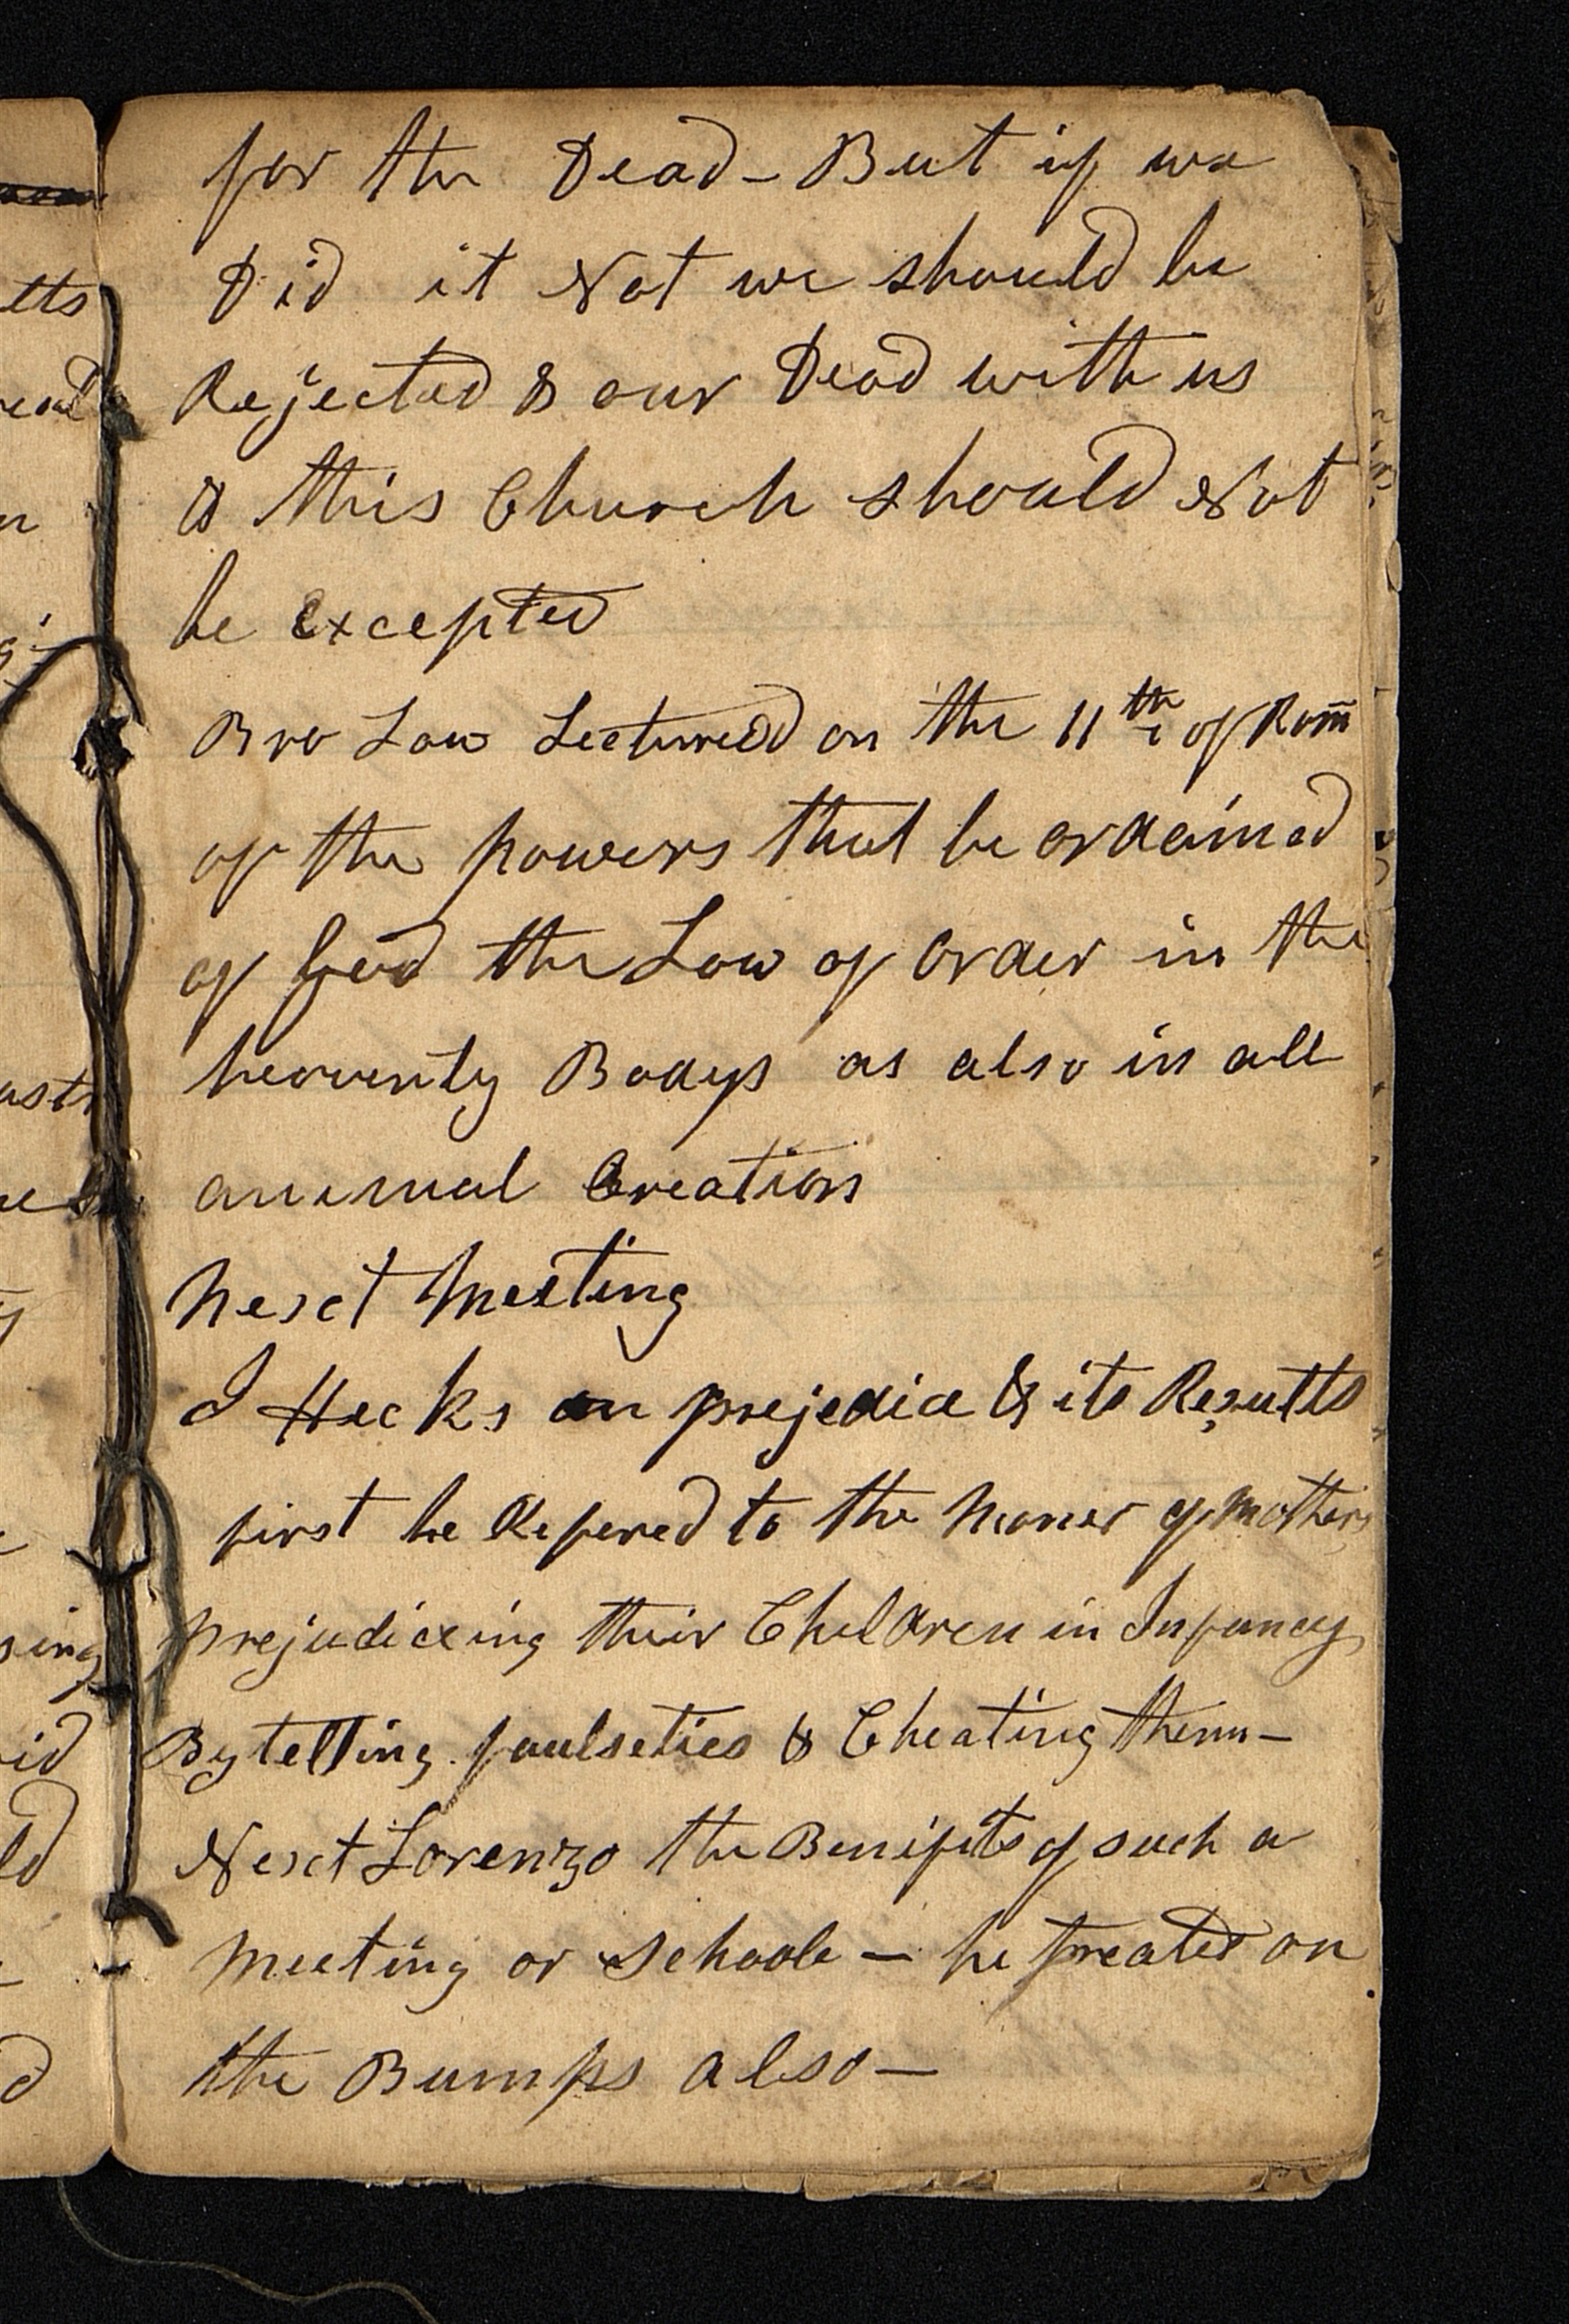 for the Dead - But if we
Did it Not we should be
Rejected & our Dead with us
& this Church should Not
be Excepted
Bro Law Lectured on the 11th of Rom
of the powers that be ordained
of God the Law of Order in the
heavenly Bodys as also in all
animal Creation
Next Meeting
J Hecks on prejedice & its Results
first he Refered to the Maner of Mothers
prejudiceing their Children in Infancy
By telling faulseties & Cheating them -
Next Lorenzo the Benifits of such a
Meeting or Schoole - he treated on
the Bumps also -